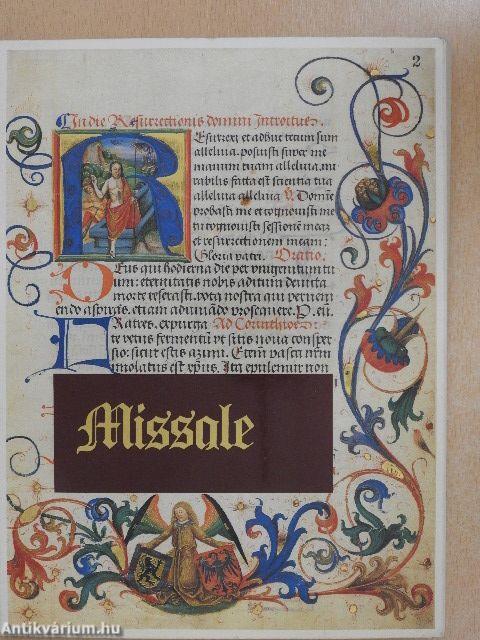 2
In die Resurrectionis domini Introitus.
Resurrexi et adhuc tecum sum
alleluia. posuisti super me
manum tuam alleluia. mi
rabilis facta est scientia tua
alleluia alleluia V. Domine
probasti me et cognouisti me
tu cognouisti sessionem meaz
et resurrectionem meam:
Gloria patri. Oratio.
DEus qui hodierna die per vnigenitum tu
um: eternitatis nobis aditum deuicta
morte reserasti. vota nostra que preueni
endo aspiras. etiam adiuuado prosequere. P. eu
FRatres. expurga Ad Corinthios
te vetus fermentu vt sitis noua consper
sio: sicut estis azimi. Etem pasca nrm
immolatus est xps. Ita epulemur non
Missale
Antikvárium.hu